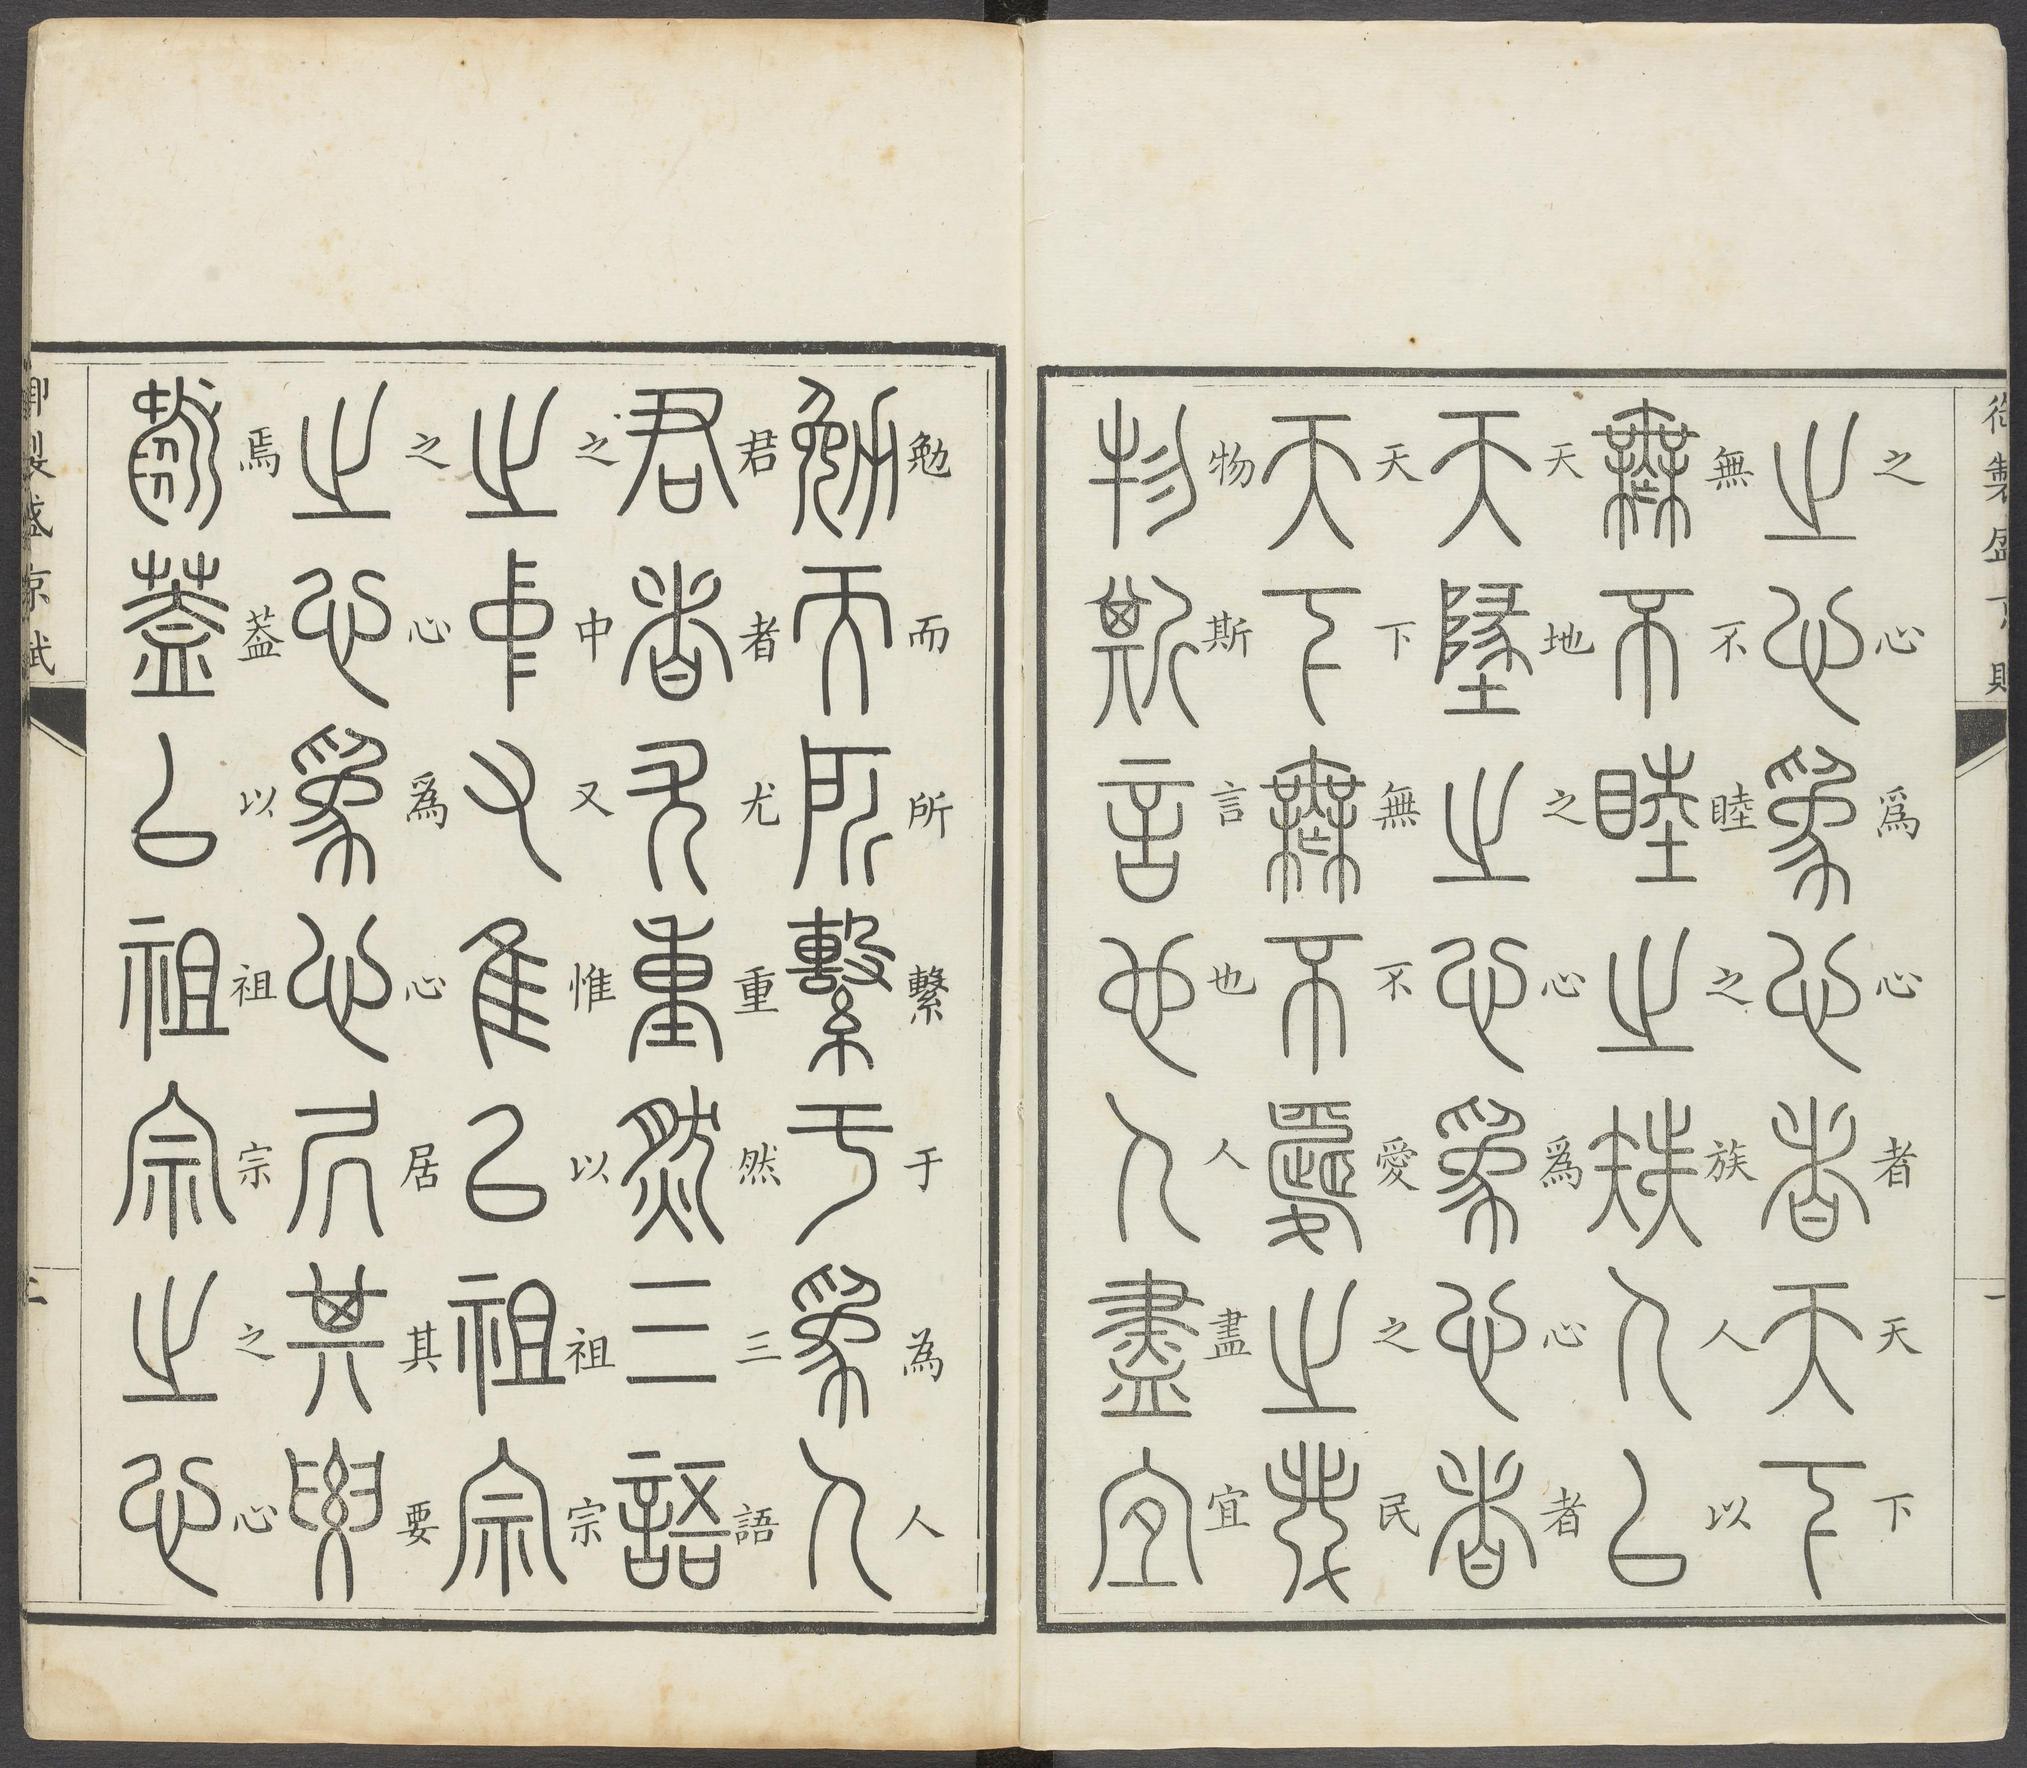 御製盛京賦
一
之心爲心者天下
之心爲心者天下
無不睦之族人以
無不睦之族人以
天地之心爲心者
天地之心爲心者
天下無不愛之民
天下無不愛之民
物斯言也人盡宜
物斯言也人盡宜
勉而所繫于為人
勉而所繫于爲人
君者尤重然三語
君者尤重然三語
之中又惟以祖宗
之中又惟以祖宗
之心爲心居其要
之心爲心居其要
焉蓋以祖宗之心
焉蓋以祖宗之心
御製盛京賦
二